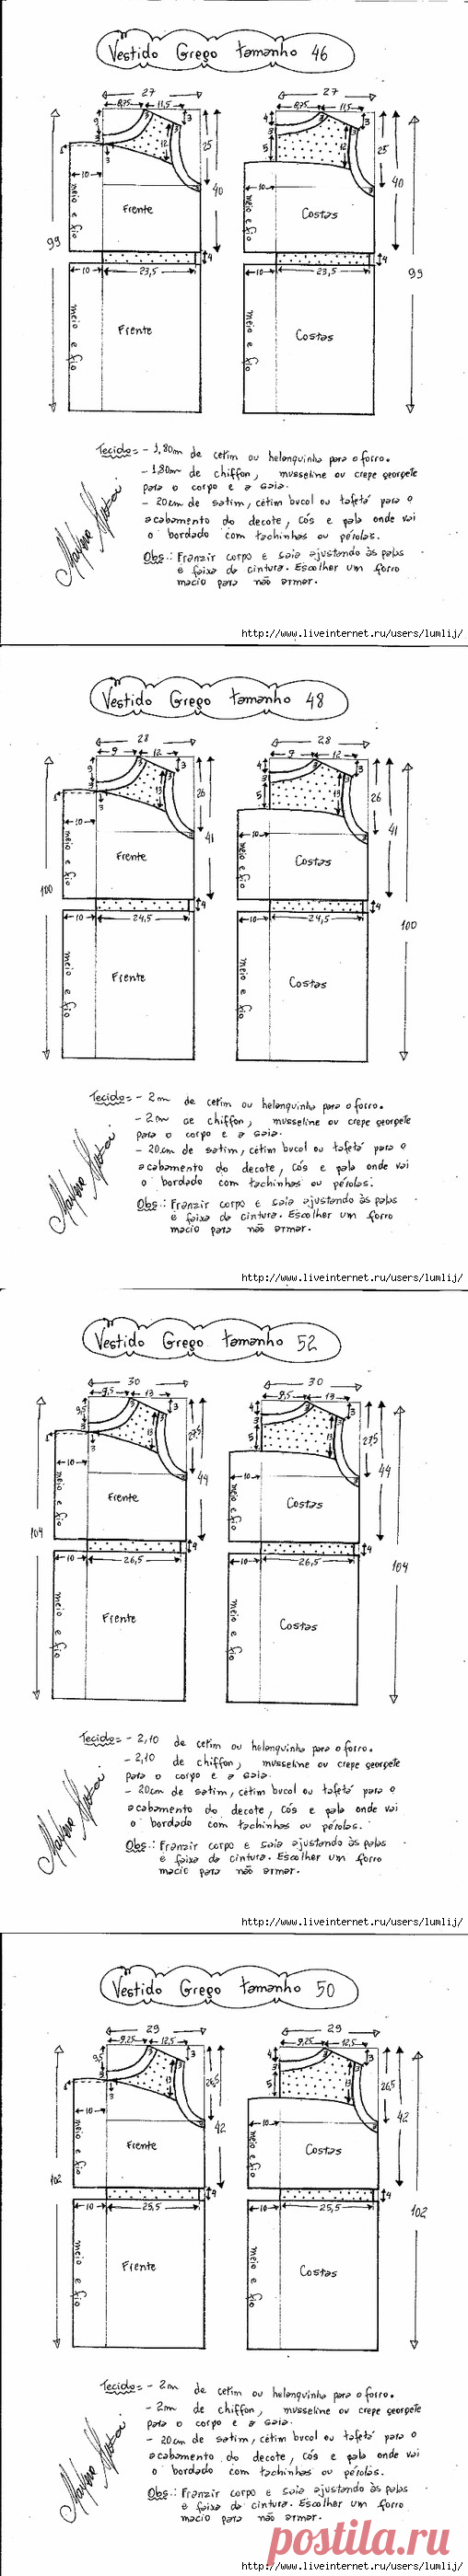 Vestido Grego tamanho 46
27 27
8,75 11,5 8,75 11,5
9 3 3 4 3 3
12 25 5 12 25
3 3
10 40 10 40
meio e fio Frente meio e fio Costas
99 4 4 99
10 23,5 10 23,5
meio e fio Frente meio e fio Costas
Tecido = - 1,80m de cetim ou helanquinha para o forro.
- 1,80m de chiffon, musseline ou crepe georgete
para o corpo e a saia.
- 20cm de satim, cetim bucol ou tafetá para o
acabamento do decote, cós e pala onde vai
o bordado com tachinhas ou pérolas.
Obs.: Franzir corpo e saia ajustando às palas
e faixa da cintura. Escolher um forro
macio para não armar.
http://www.liveinternet.ru/users/lumlij/
Vestido Grego tamanho 48
28 28
9 12 9 12
9 3 3 4 3 3
13 26 5 13 26
3 3
10 41 10 41
meio e fio Frente meio e fio Costas
100 4 4 100
10 24,5 10 24,5
meio e fio Frente meio e fio Costas
Tecido = - 2m de cetim ou helanquinha para o forro.
- 2m de chiffon, musseline ou crepe georgete
para o corpo e a saia.
- 20cm de satim, cetim bucol ou tafetá para o
acabamento do decote, cós e pala onde vai
o bordado com tachinhas ou pérolas.
Obs.: Franzir corpo e saia ajustando às palas
e faixa da cintura. Escolher um forro
macio para não armar.
http://www.liveinternet.ru/users/lumlij/
Vestido Grego tamanho 52
30 30
9,5 13 9,5 13
9,5 3 3 4 3 3
13 27,5 5 13 27,5
3 3
10 44 10 44
meio e fio Frente meio e fio Costas
104 4 4 104
10 26,5 10 26,5
meio e fio Frente meio e fio Costas
Tecido = - 2,10 de cetim ou helanquinha para o forro.
- 2,10 de chiffon, musseline ou crepe georgete
para o corpo e a saia.
- 20cm de satim, cetim bucol ou tafetá para o
acabamento do decote, cós e pala onde vai
o bordado com tachinhas ou pérolas.
Obs.: Franzir corpo e saia ajustando às palas
e faixa da cintura. Escolher um forro
macio para não armar.
http://www.liveinternet.ru/users/lumlij/
Vestido Grego tamanho 50
29 29
9,25 12,5 9,25 12,5
9,5 3 3 4 3 3
13 26,5 5 13 26,5
3 3
10 42 10 42
meio e fio Frente meio e fio Costas
102 4 4 102
10 25,5 10 25,5
meio e fio Frente meio e fio Costas
Tecido = - 2m de cetim ou helanquinha para o forro.
- 2m de chiffon, musseline ou crepe georgete
para o corpo e a saia.
- 20cm de satim, cetim bucol ou tafetá para o
acabamento do decote, cós e pala onde vai
o bordado com tachinhas ou pérolas.
Obs.: Franzir corpo e saia ajustando às palas
e faixa da cintura. Escolher um forro
macio para não armar.
postila.ru
http://www.liveinternet.ru/users/lumlij/